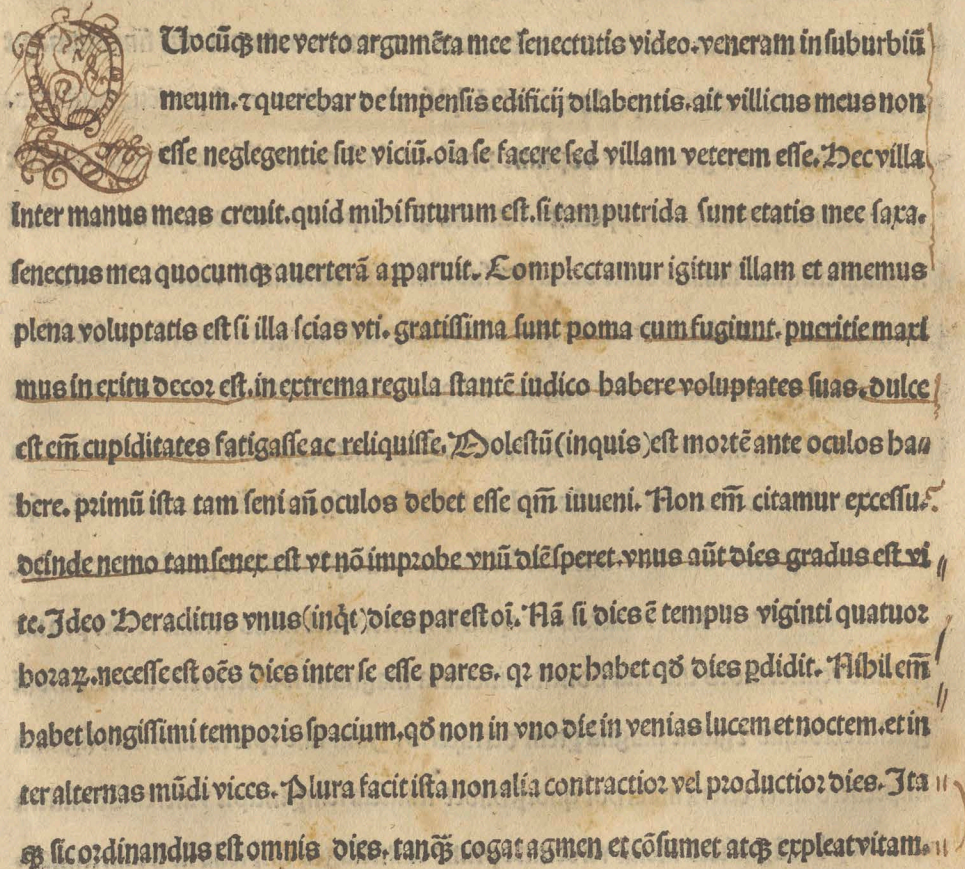 QUocūqꝫ me verto argumēta mee senectutis video.veneram in suburbiū
meum.⁊ querebar de impensis edificij dilabentis.ait villicus meus non
esse neglegentie sue viciū.oīa se facere sed villam veterem esse.Hec villa
inter manus meas creuit.quid mihi futurum est.si tam putrida sunt etatis mee saxa.
senectus mea quocumqꝫ auerterā aꝑparuit. Complectamur igitur illam et amemus
plena voluptatis est si illa scias vti. gratissima sunt poma cum fugiunt. pueritie maxi
mus in exitu decor est.in extrema regula stantē iudico habere voluptates suas.dulce
est em̄ cupiditates fatigasse ac reliquisse. Molestū(inquis)est mortē ante oculos ha⸗
bere. primū ista tam seni an̄ oculos debet esse qm̄ iuueni. Non em̄ citamur excessu.
deinde nemo tam senex est vt nō improbe vnū diē speret.vnus aūt dies gradus est vi
te.Ideo Heraclitus vnus(inq̇t)dies par est oī. Nā si dies ē tempus viginti quatuor
horaꝝ.necesse est oēs dies inter se esse pares. qꝛ nox habet qđ dies ꝑdidit. Nihil em̄
habet longissimi temporis spacium.qđ non in vno die in venias lucem et noctem.et in
ter alternas mūdi vices. Plura facit ista non alia contractior vel productior dies. Ita
qꝫ sic ordinandus est omnis dies. tanqꝫ̄ cogat agmen et cōsumet atqꝫ expleat vitam.